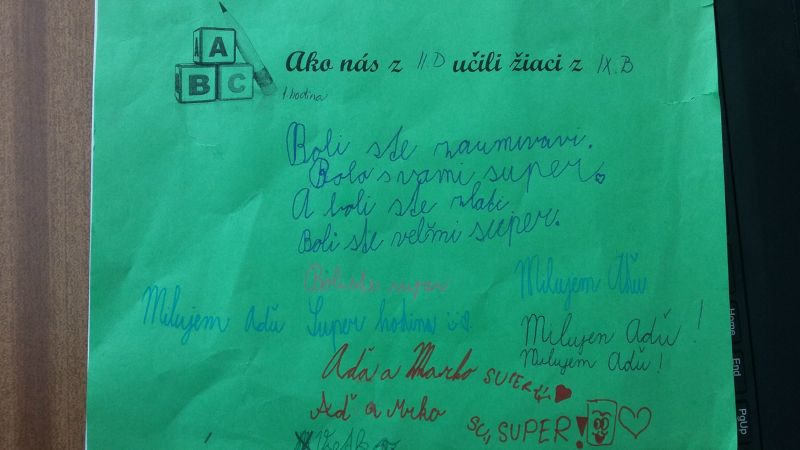 A
B C
Ako nás z II.D učili žiaci z IX.B
1. hodina
Boli ste zaumívavi.
Bolo s vami super.
A boli ste zlatí
Boli ste veľmi super.
Boli ste super
Milujem Aďu
Milujem Aďu Super hodina
Milujem Aďu!
Milujem Aďu!
Aďa a Marko SUPER
Aď a Mrko
SUPER!
Home
End
PgUp